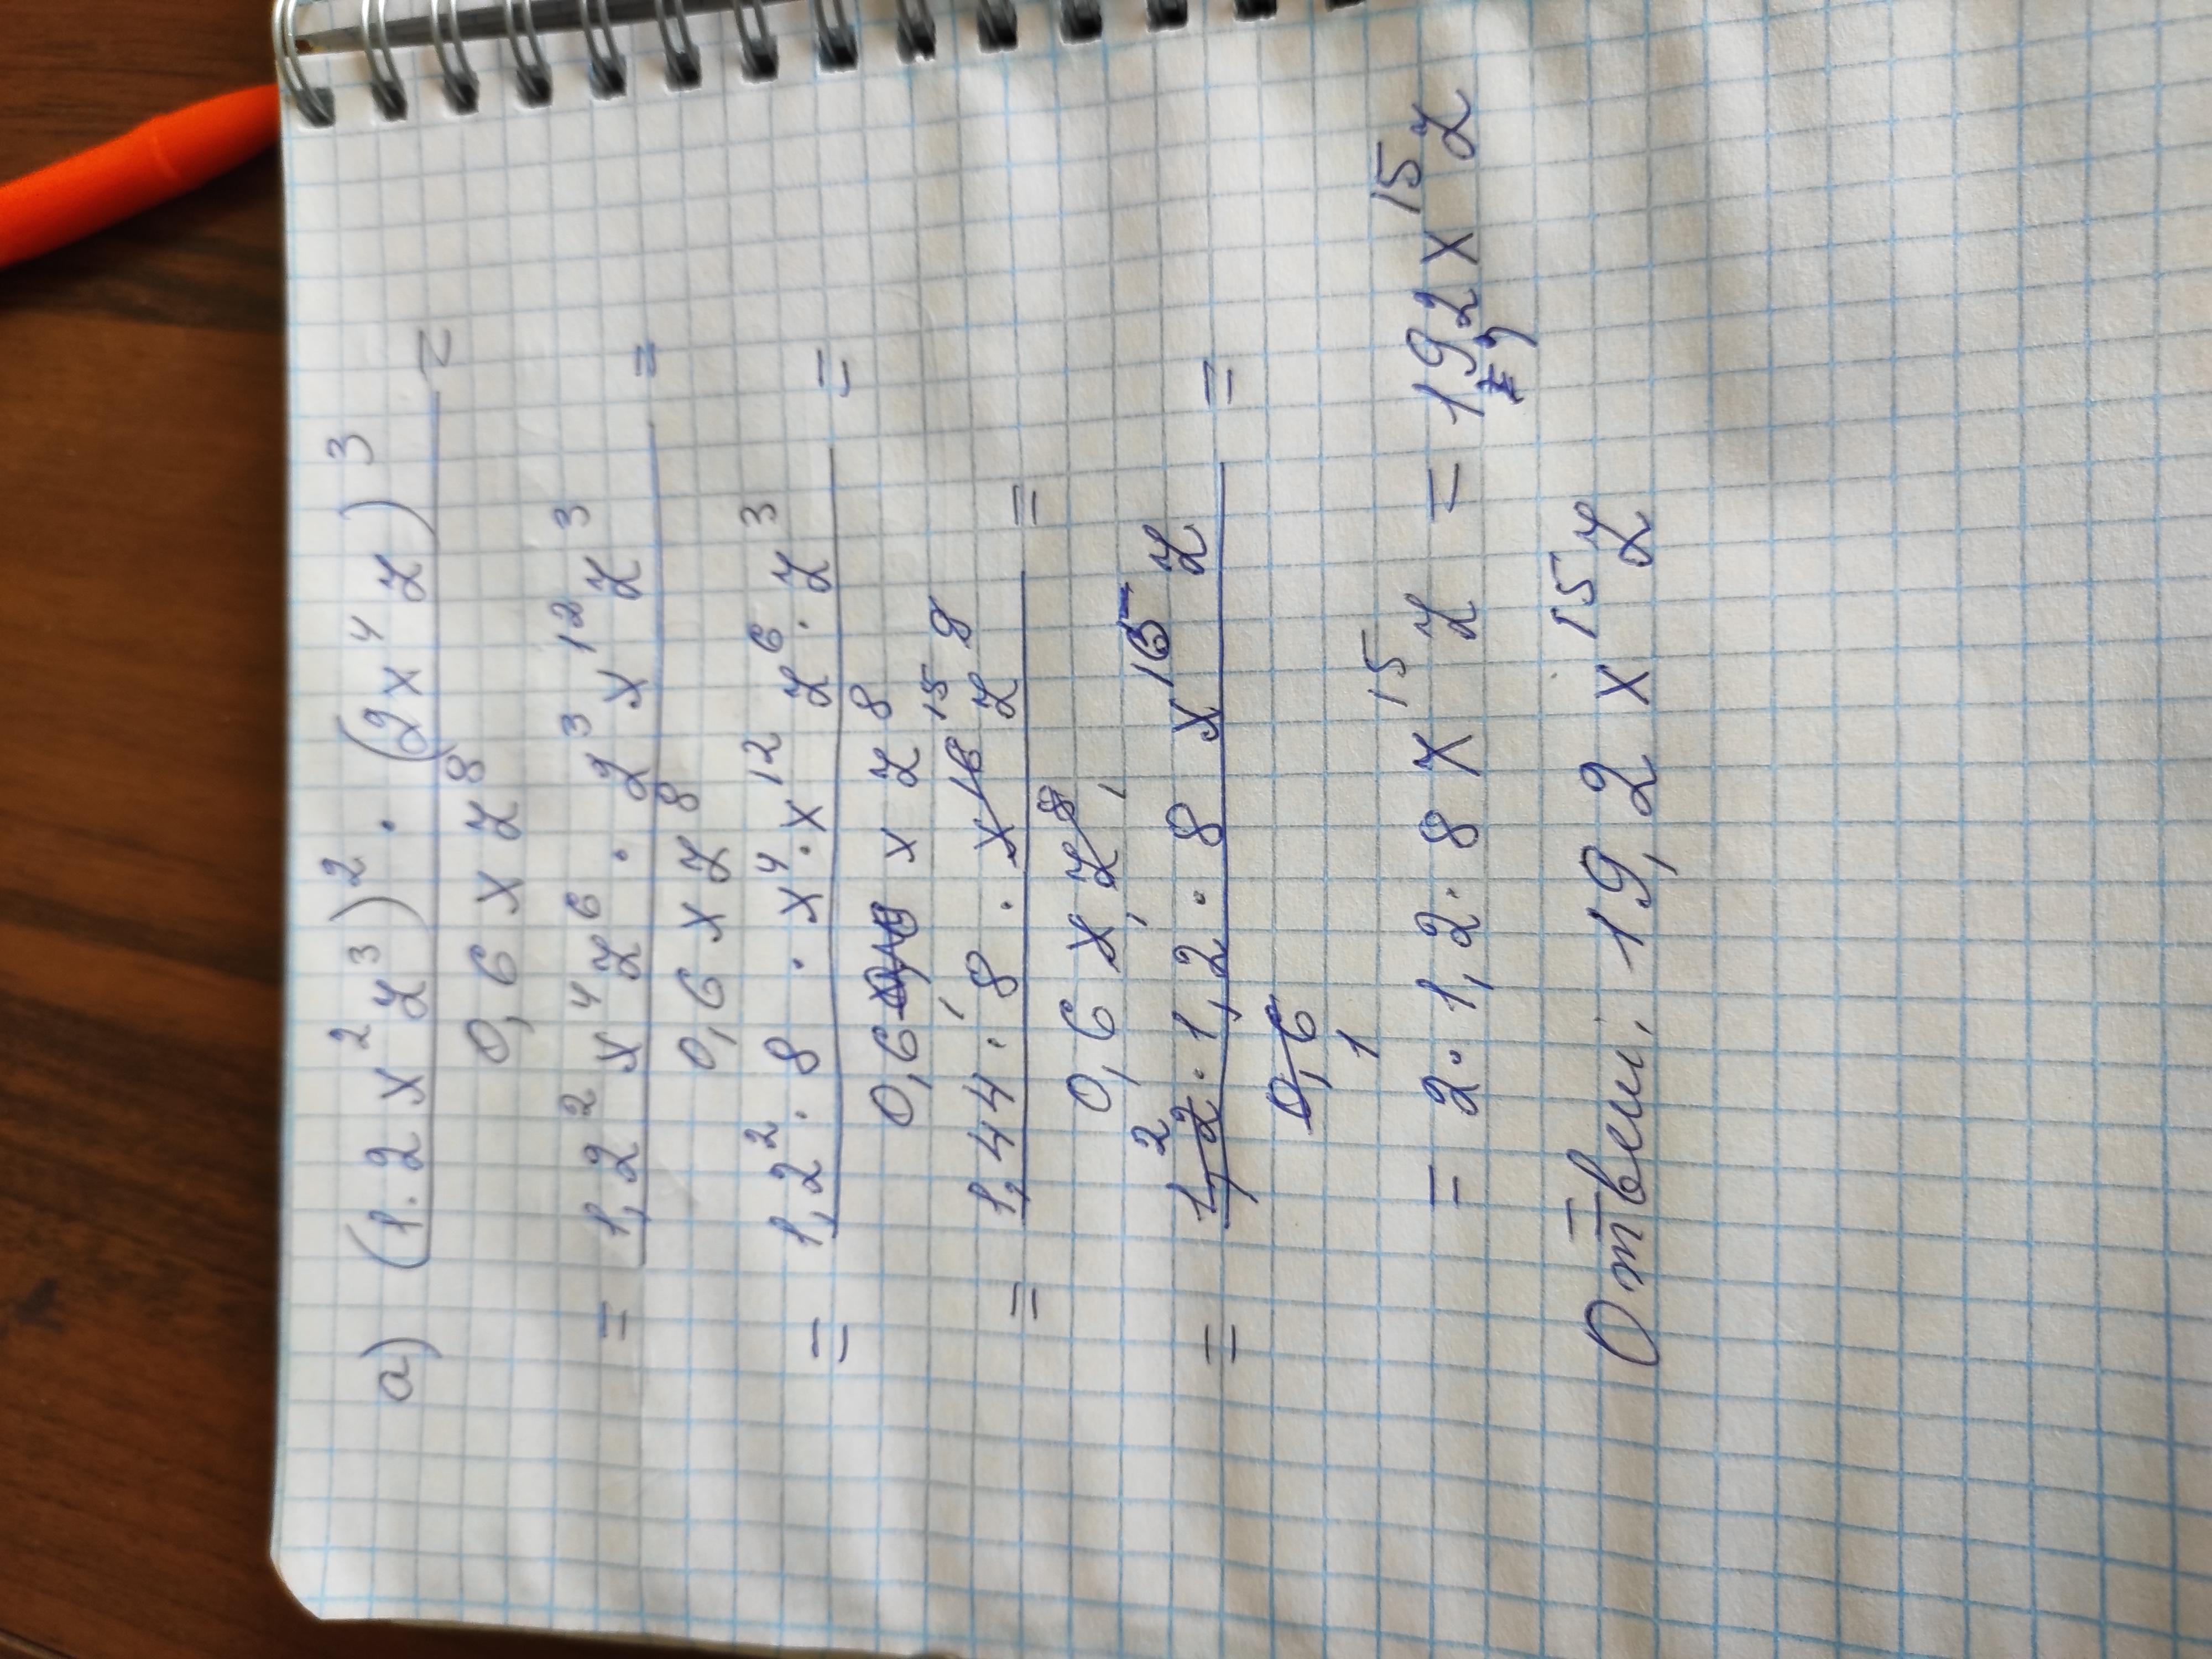 а) (1.2x²z³)² · (2x⁴z)³ =
0,6xz⁸
= 1,2² x⁴z⁶ · 2³x¹²z³ =
0,6xz⁸
= 1,2² · 8 · x⁴ · x¹² z⁶ · z³ =
0,6 x z⁸
15
= 1,44 · 8 · x¹⁶ z⁹ =
0,6 x z⁸
2
= 1,2 · 1,2 · 8 x¹⁵ z =
0,6
1
= 2 · 1,2 · 8 x¹⁵ z = 19,2x¹⁵z
Ответ: 19,2x¹⁵z